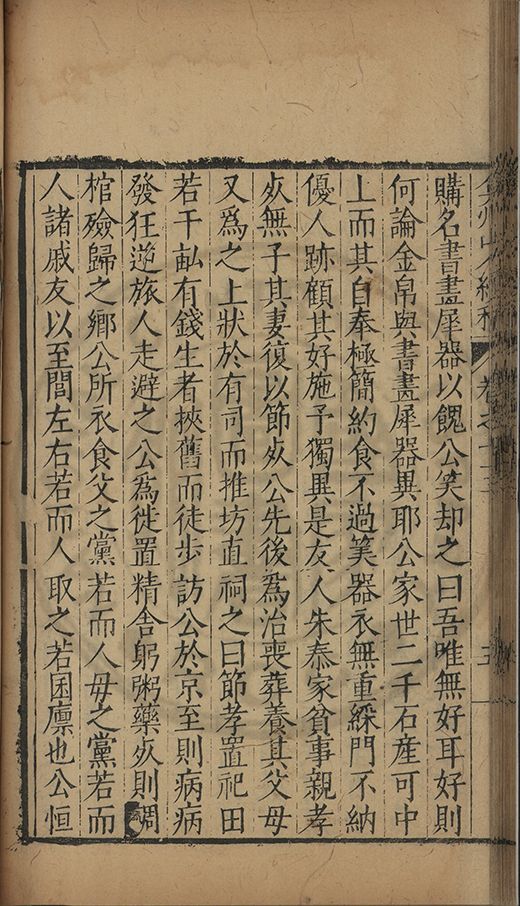 弇州山人續稿 卷之
購名書畫犀器以餽公笑却之曰吾唯無好耳好則
何論金帛與書畫犀器異耶公家世二千石產可中
上而其自奉極簡約食不過器衣無重綵門不納
優人跡顧其好施予獨異是友人朱泰家貧事親孝
死無子其妻復以節死公先後為治喪葬養其父母
又為之上狀於有司而推坊直祠之曰節孝置祀田
若干畝有錢生者挾舊而徒步訪公於京至則病病
發狂逆旅人走避之公為徙置精舍躬粥藥死則
棺殮歸之鄉公所衣食父之黨若而人母之黨若而
人諸戚友以至閭左右若而人取之若囷廩也公恒